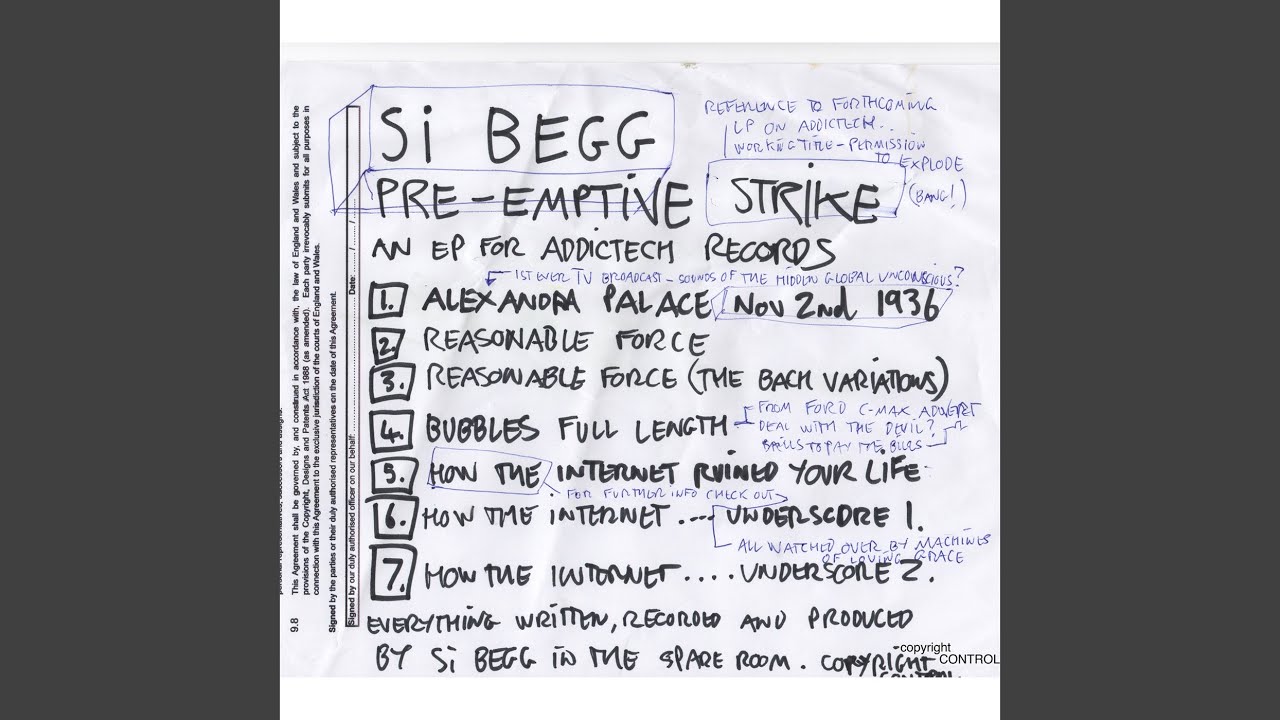 Si BEGG
REFERENCE TO FORTHCOMING
LP ON ADDICTECH..
WORKING TITLE - PERMISSION
TO EXPLODE
(BANG!)
PRE-EMPTIVE STRIKE
AN EP FOR ADDICTECH RECORDS
1ST EVER TV BROADCAST - SOUNDS OF THE HIDDEN GLOBAL UNCONSCIOUS?
1. ALEXANDRA PALACE NOV 2nd 1936
2. REASONABLE FORCE
3. REASONABLE FORCE (THE BACH VARIATIONS)
4. BUBBLES FULL LENGTH
FROM FORD C-MAX ADVERT
DEAL WITH THE DEVIL?
BILLS TO PAY THE BILLS
5. HOW THE INTERNET RUINED YOUR LIFE
FOR FURTHER INFO CHECK OUT
6. HOW THE INTERNET .... UNDERSCORE 1.
ALL WATCHED OVER BY MACHINES
OF LOVING GRACE
7. HOW THE INTERNET .... UNDERSCORE 2.
EVERYTHING WRITTEN, RECORDED AND PRODUCED
BY Si BEGG IN THE SPARE ROOM. COPYRIGHT
CONTROL
copyright
CONTROL
9.8 This Agreement shall be governed by, and construed in accordance with, the law of England and Wales and subject to the
provisions of the Copyright, Designs and Patents Act 1988 (as amended). Each party irrevocably submits for all purposes in
connection with this Agreement to the exclusive jurisdiction of the courts of England and Wales.
Signed by the parties or their duly authorised representatives on the date of this Agreement.
Signed by our duly authorised officer on our behalf: Date: / /